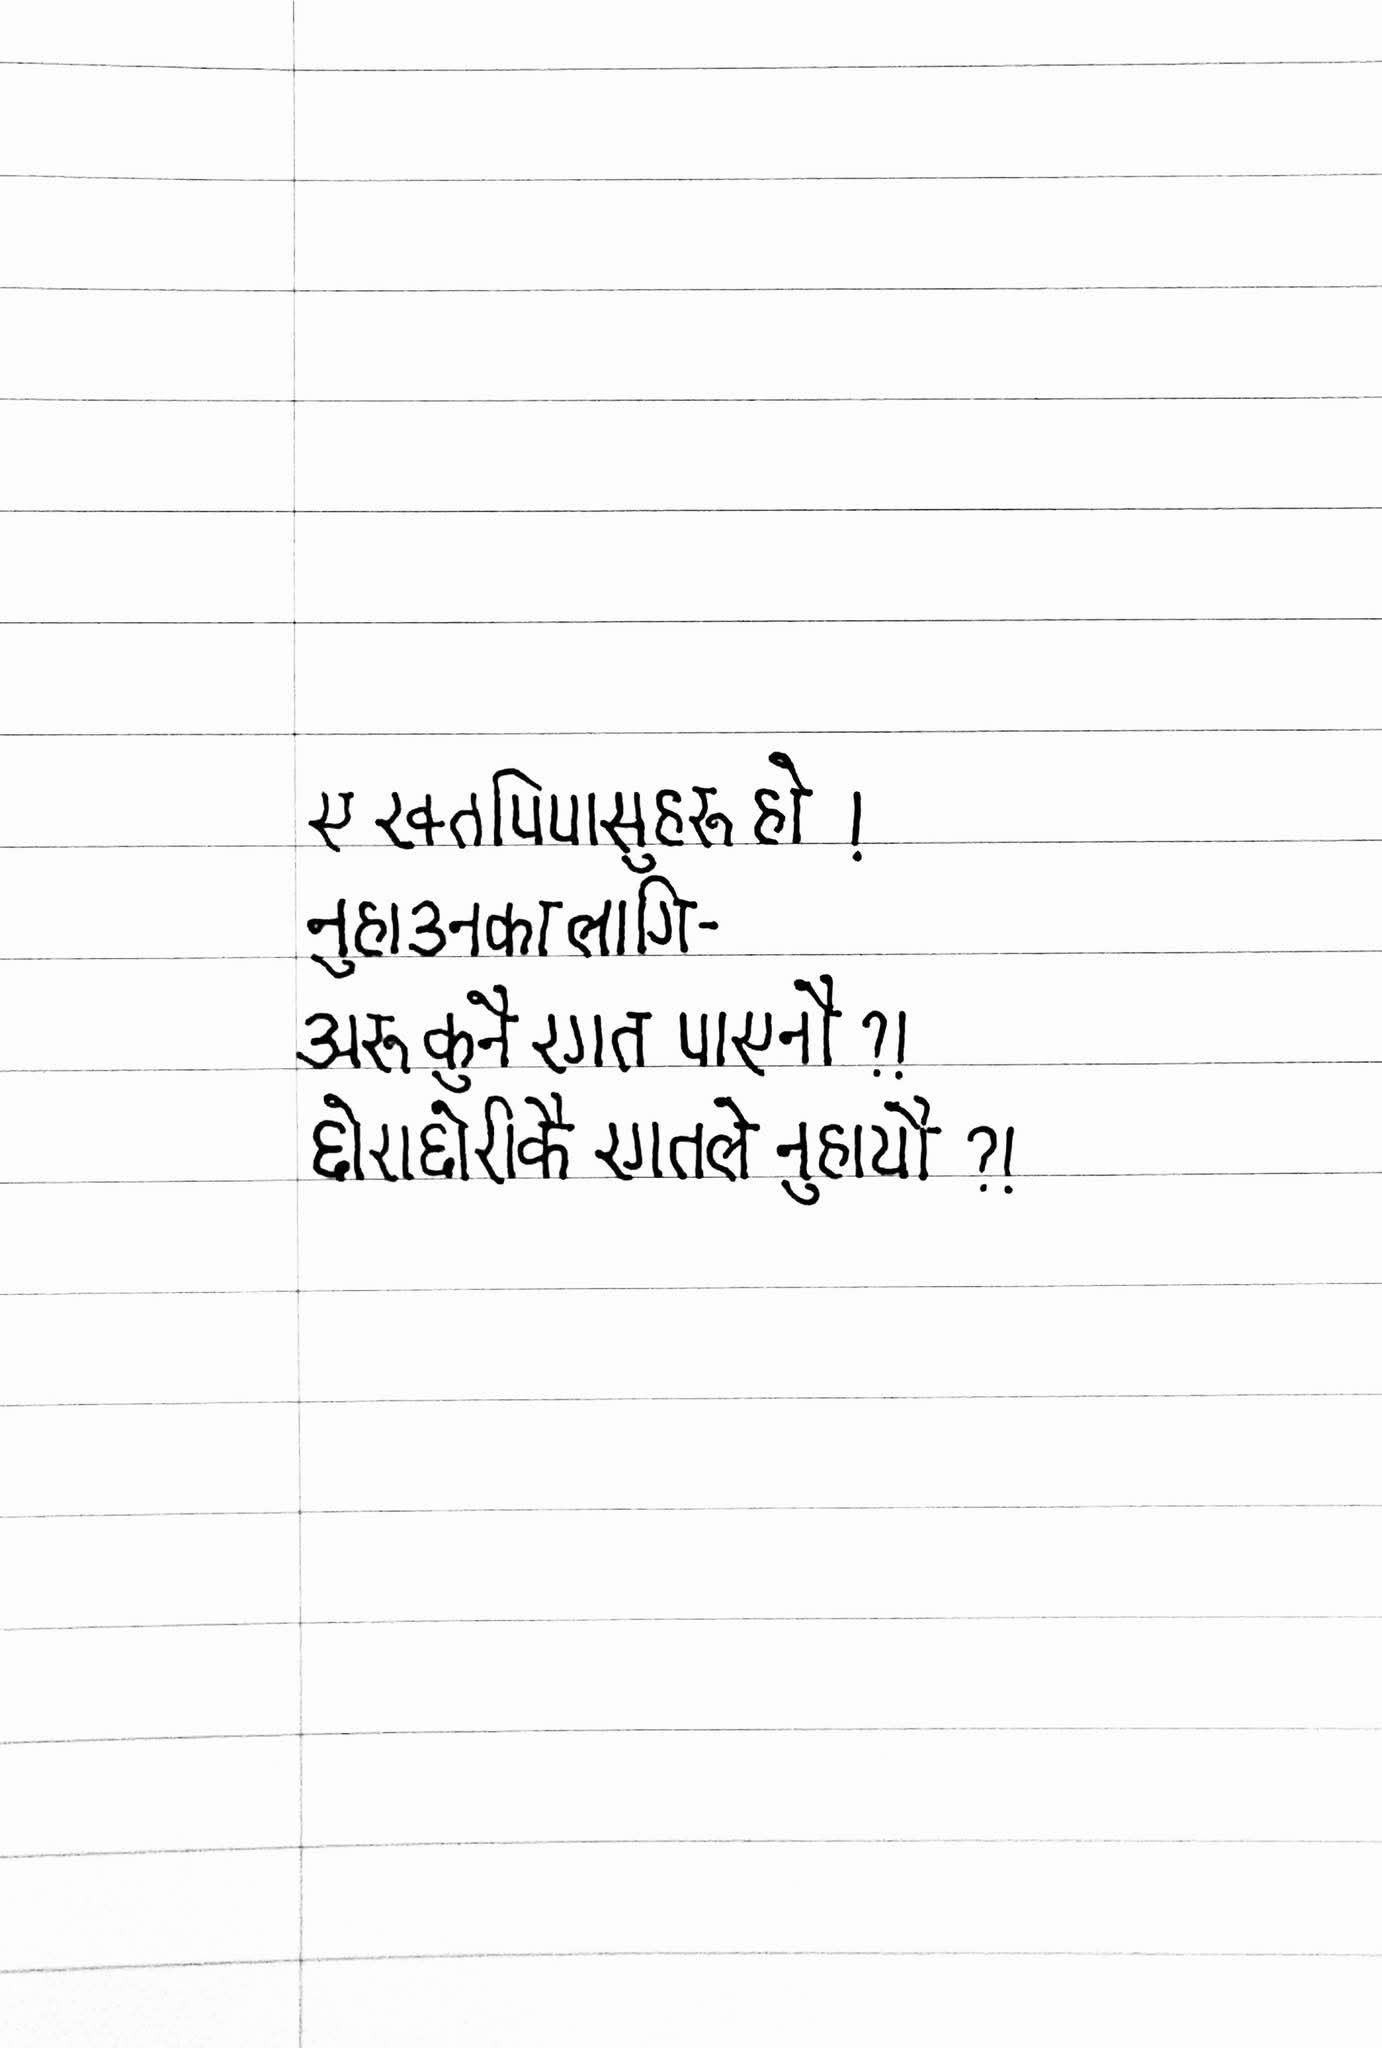 ए रक्तपिपासुहरू हो !
नुहाउनका लागि-
अरू कुनै रगत पाएनौ ?!
छोराछोरीकै रगतले नुहायौ ?!